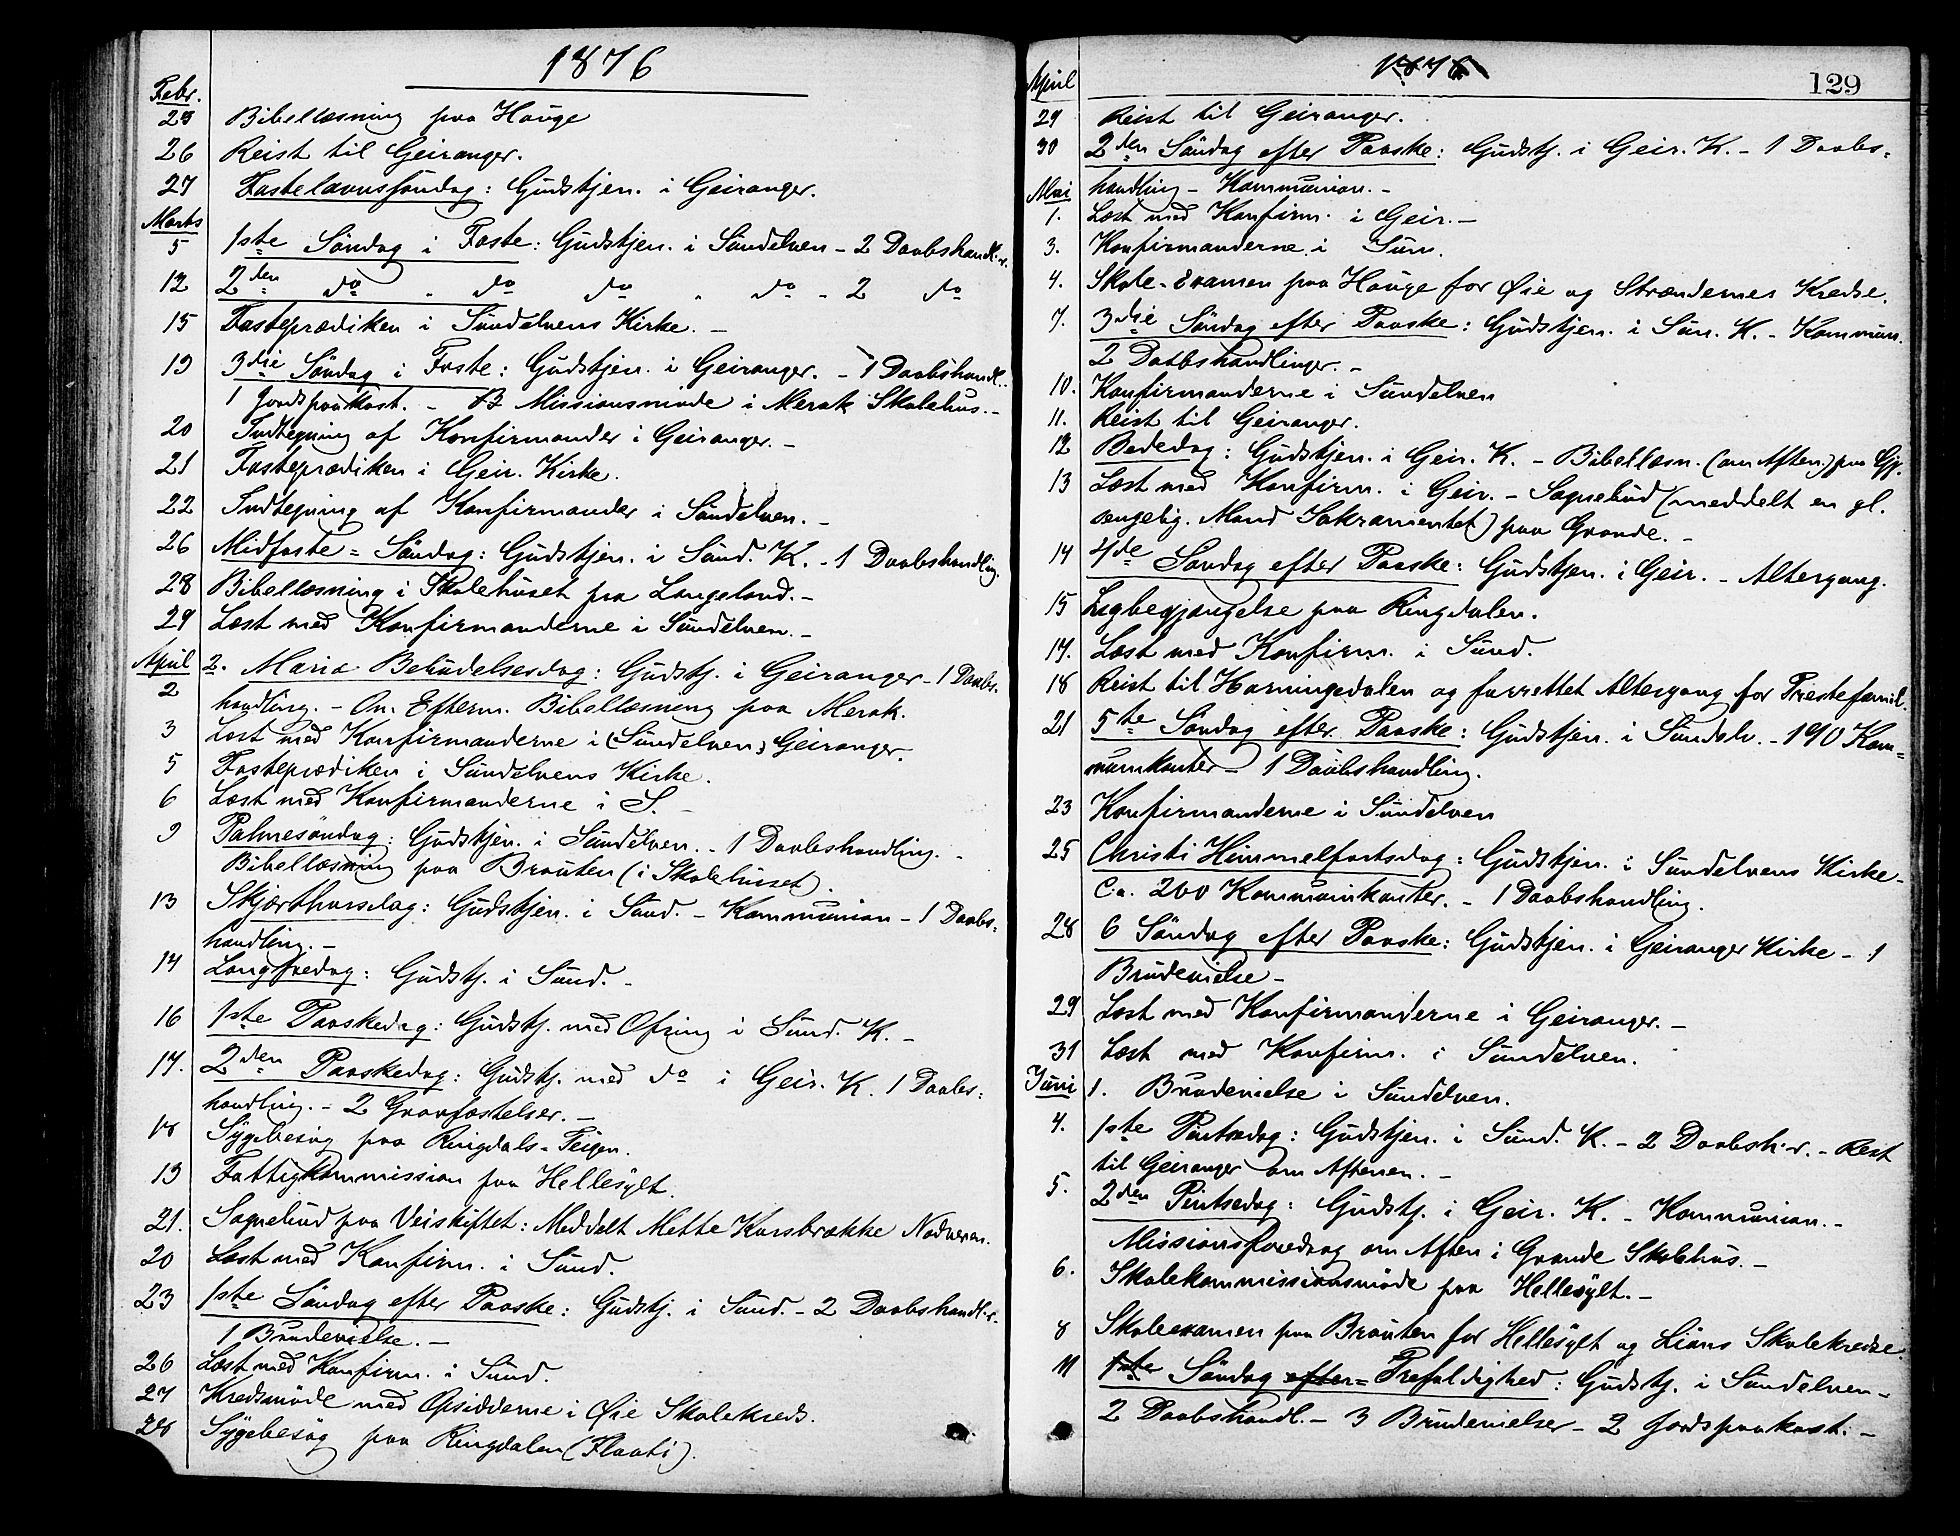 1876
Febr.
25 Bibellæsning paa Hauge
26 Reist til Geiranger.
27 Fastelavnssöndag: Gudstjen. i Geiranger.
Marts
5 1ste Söndag i Faste: Gudstjen. i Sündelven - 2 Daabshandl.r.
12 2den do " do do " do - 2 do
15 Fasteprædiken i Sündelvens Kirke. -
19 3die Söndag i Faste: Gudstjen. i Geiranger. - 1 Daabshandl..
1 Jordspaakast. - Missionsmöde i Merak Skolehus. -
20 Indtegning af Konfirmander i Geiranger. -
21 Fasteprædiken i Geir. Kirke.
22 Indtegning af Konfirmander i Sündelven. -
26 Midfaste-Söndag: Gudstjen. i Sünd. K. - 1 Daabshandling.
28 Bibellæsning i Skolehuset paa Langeland. -
29 Læst med Konfirmanderne i Sündelven. -
April 2. Maria Bebudelsesdag: Gudstj. i Geiranger - 1 Daabs-
2 handling. - On. Efterm. Bibellæsning paa Merak.
3 Læst med Konfirmanderne i (Sündelven) Geiranger.
5 Fasteprædiken i Sündelvens Kirke.
6 Læst med Konfirmanderne i S. -
9 Palmesöndag: Gudstjen. i Sündelven. - 1 Daabshandling. -
Bibellæsning paa Brauten (i Skolehuset).
13 Skjærthorsdag: Gudstjen. i Sünd. - Kommunion - 1 Daabs-
handling. -
14 Langfredag: Gudstj. i Sünd. -
16 1ste Paaskedag: Gudstj. med Ofring i Sünd. K. -
17. 2den Paaskedag: Gudstj. med do i Geir. K. 1 Daabs-
handling. - 2 Gravfæstelser. -
18 Sygebesög paa Ringdals-Teigen.
19 Fattigkommission paa Hellesylt.
21. Sognebud paa Veiskiftet: Meddelt Mette Korsbrække Nadveren.
20 Læst med Konfirm. i Sünd.
23 1ste Söndag efter Paaske: Gudstj. i Sünd. - 2 Daabshandl.r.
1 Brudevielse. -
26 Læst med Konfirm. i Sünd.
27 Kredsmöde med Opsidderne i Øie Skolekreds.
28 Sygebesög paa Ringdalen (Flaati).
1876
129
April
29 Reist til Geiranger.
30 2den Söndag efter Paaske: Gudstj. i Geir. K. - 1 Daabs-
handling - Kommunion. -
Mai
1. Læst med Konfirm. i Geir. -
3. Konfirmanderne i Sün.
4. Skole-Examen paa Hauge for Øie og Strandernes Kredse.
7. 3die Söndag efter Paaske: Gudstjen. i Sün. K. - Kommun.
2 Daabshandlinger. -
10. Konfirmanderne i Sündelven
11. Reist til Geiranger.
12 Bededag: Gudstjen. i Geir. K. - Bibellæsn. (om Aften.) paa Gj.
13 Læst med Konfirm. i Geir. - Sognebud (meddelt en gl.
sengelig. Mand Sakramentet) paa Grande. -
14 4de Söndag efter Paaske: Gudstjen. i Geir. - Altergang.
15 Ligbegjængelse paa Ringdalen.
17. Læst med Konfirm. i Sünd.
18 Reist til Horningdalen og forrettet Altergang for Præstefamil.
21 5te Söndag efter Paaske: Gudstjen. i Sündelv. - 190 Kom-
munikanter - 1 Daabshandling.
23 Konfirmanderne i Sündelven
25 Christi Himmelfartsdag: Gudstjen. i Sundelvens Kirke -
C.a. 200 Kommunikanter. - 1 Daabshandling.
28 6 Söndag efter Paaske: Gudstjen. i Geiranger Kirke - 1
Brudevielse -
29 Læst med Konfirmanderne i Geiranger. -
31 Læst med Konfirm. i Sündelven.
Juni 1. Brudevielse i Sündelven.
4. 1ste Pintsedag: Gudstjen. i Sünd. K. - 2 Daabsh.r. - Reist
til Geiranger om Aftenen. -
5. 2den Pintsedag: Gudstj. i Geir. K. - Kommunion. -
Missionsforedrag om Aften i Grande Skolehus. -
6. Skolekommissionsmöde paa Hellesylt. -
8 Skoleexamen paa Brauten for Hellesylt og Liens Skolekredse.
11 1ste Söndag efter Trefoldighed: Gudstj. i Sündelven -
2 Daabshandl. - 3 Brudevielser - 2 Jordspaakast. -